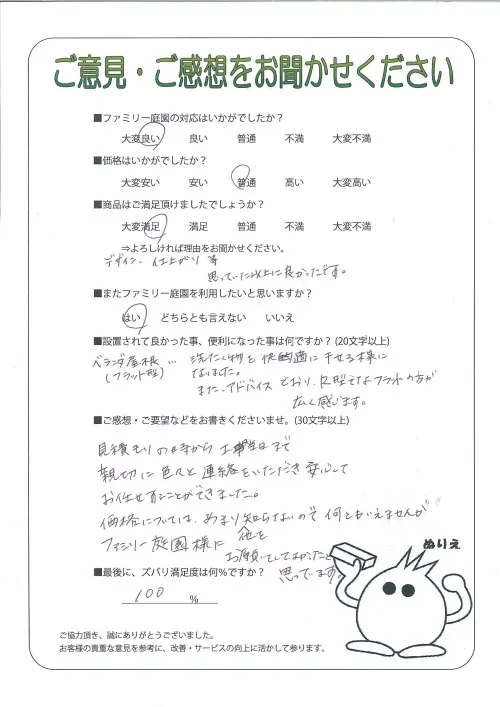 ご意見・ご感想をお聞かせください
■ファミリー庭園の対応はいかがでしたか？
大変良い 良い 普通 不満 大変不満
■価格はいかがでしたか？
大変安い 安い 普通 高い 大変高い
■商品はご満足頂けましたでしょうか？
大変満足 満足 普通 不満 大変不満
⇒よろしければ理由をお聞かせください。
デザイン、仕上がり 等
思っていた以上に良かったです。
■またファミリー庭園を利用したいと思いますか？
はい どちらとも言えない いいえ
■設置されて良かった事、便利になった事は何ですか？(20文字以上)
ベランダ屋根 … 洗たく物を快適に干せる様に
(フラット型) なりました。
また、アドバイスどおり、R型でなくフラットの方が
広く感じます。
■ご感想・ご要望などをお書きくださいませ。(30文字以上)
見積もりの時から工事当日まで
親切に色々と連絡をいただき安心して
お任せすることができました。
価格については、あまり知らないので何ともいえませんが
ファミリー庭園様に
お願いしてよかったと
思っています。
■最後に、ズバリ満足度は何％ですか？
100 ％
ぬりえ
ご協力頂き、誠にありがとうございました。
お客様の貴重な意見を参考に、改善・サービスの向上に活かして参ります。